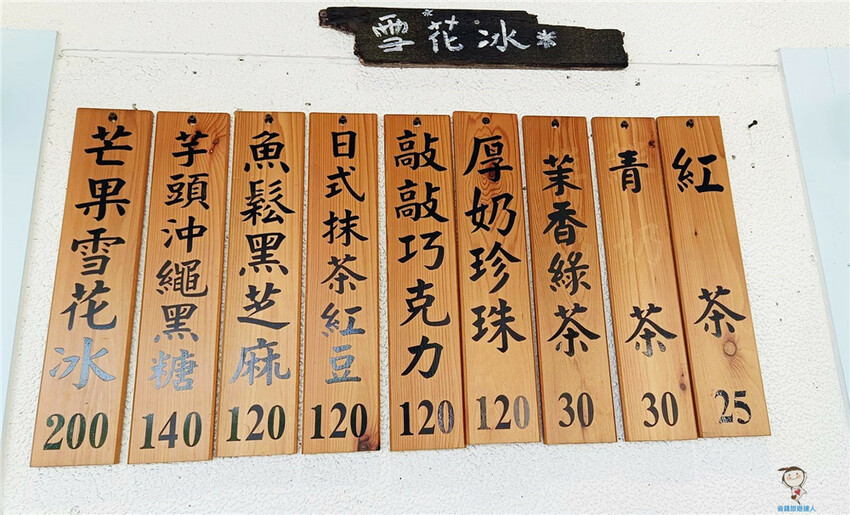 雪花冰
芒果雪花冰 200
芋頭沖繩黑糖 140
魚鬆黑芝麻 120
日式抹茶紅豆 120
敲敲巧克力 120
厚奶珍珠 120
茉香綠茶 30
青茶 30
紅茶 25
省錢旅遊達人